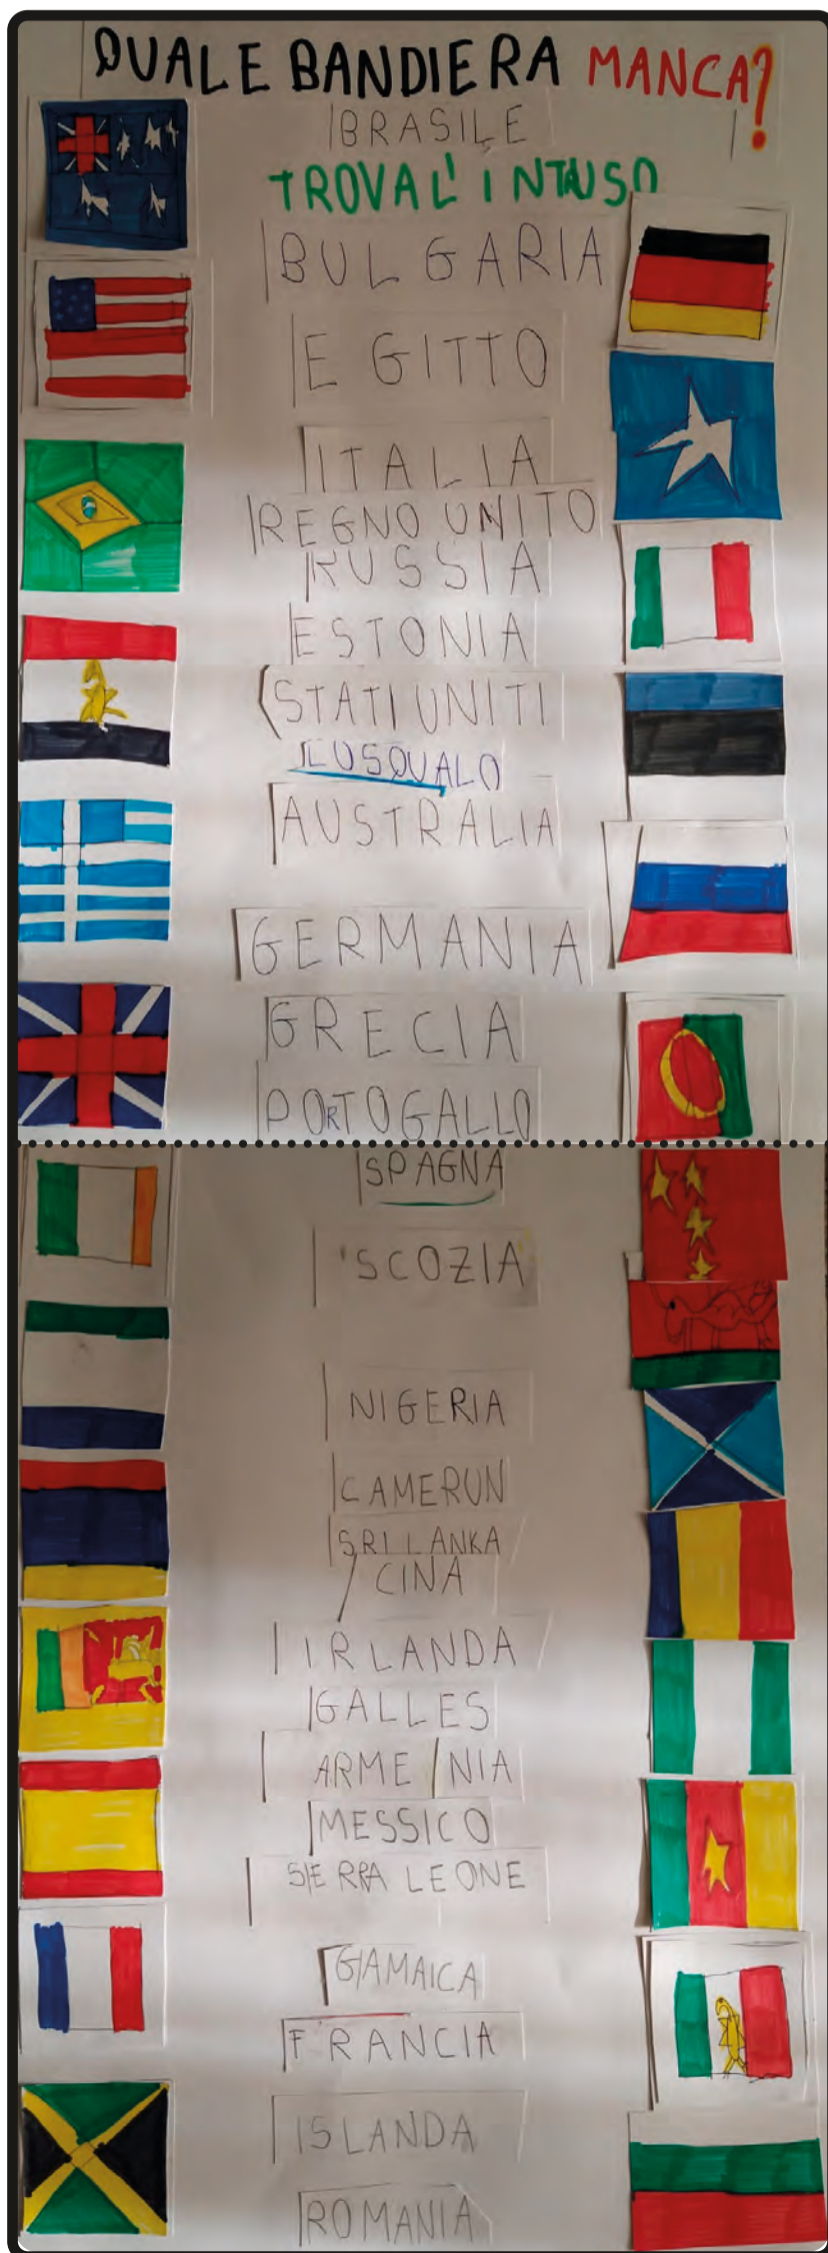 QUALE BANDIERA MANCA?
BRASILE
TROVA L'INTRUSO
BULGARIA
EGITTO
ITALIA
REGNO UNITO
RUSSIA
ESTONIA
STATI UNITI
LUSQUALO
AUSTRALIA
GERMANIA
GRECIA
PORTOGALLO
SPAGNA
SCOZIA
NIGERIA
CAMERUN
SRI LANKA
CINA
IRLANDA
GALLES
ARMENIA
MESSICO
SIERRA LEONE
GIAMAICA
FRANCIA
ISLANDA
ROMANIA